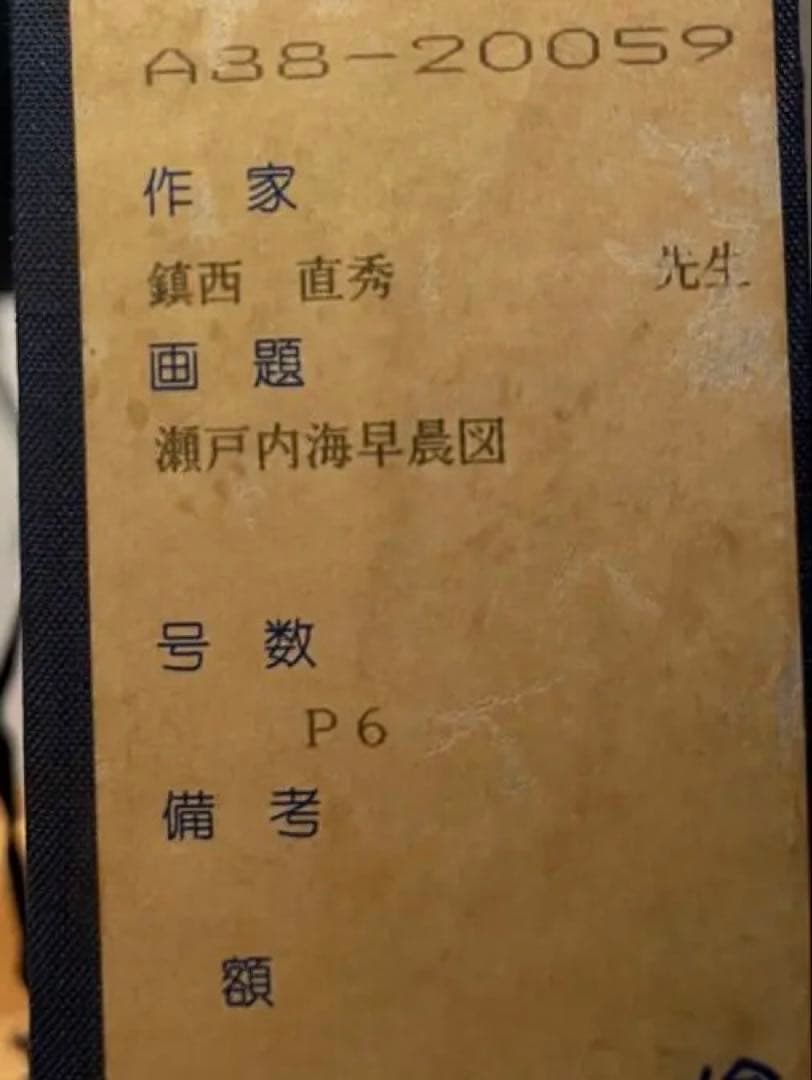 A38-20059
作 家
鎮西 直秀 先生
画 題
瀬戸内海早晨図
号 数
P6
備 考
額